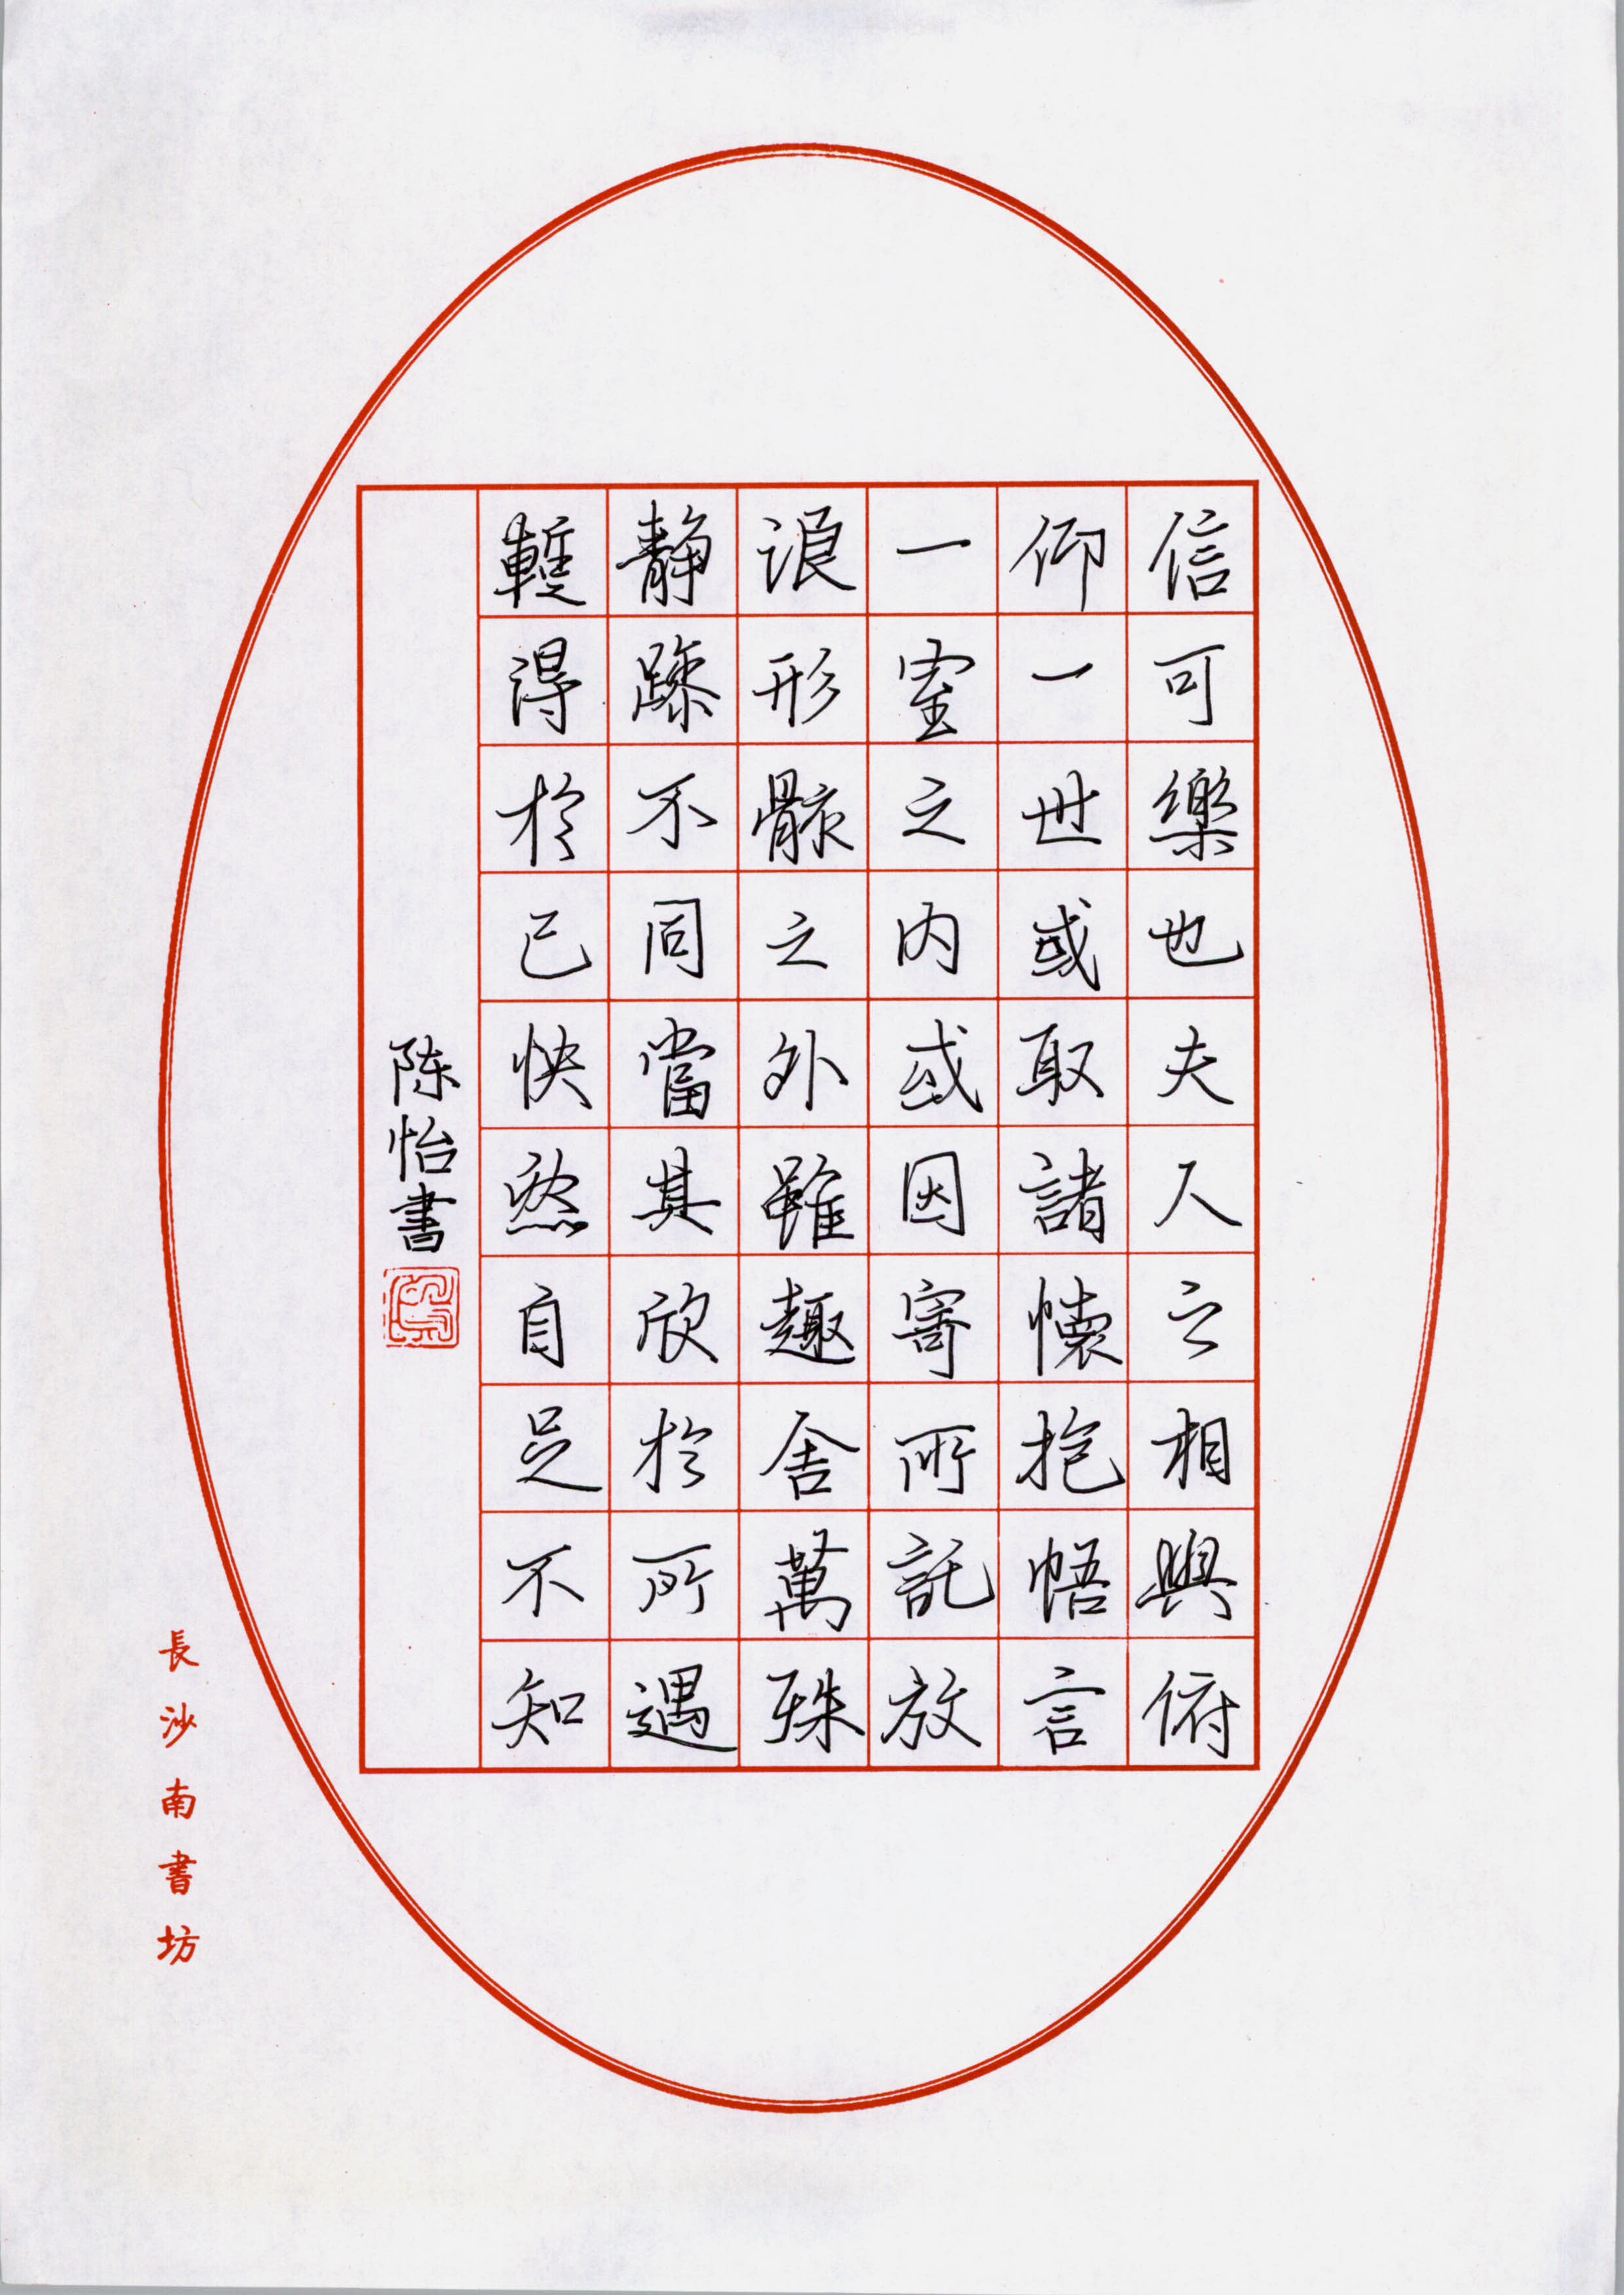 信可樂也夫人之相與俯
仰一世或取諸懷抱悟言
一室之內或因寄所託放
浪形骸之外雖趣舍萬殊
静躁不同當其欣於所遇
蹔得於己快然自足不知
陈怡書
長沙南書坊